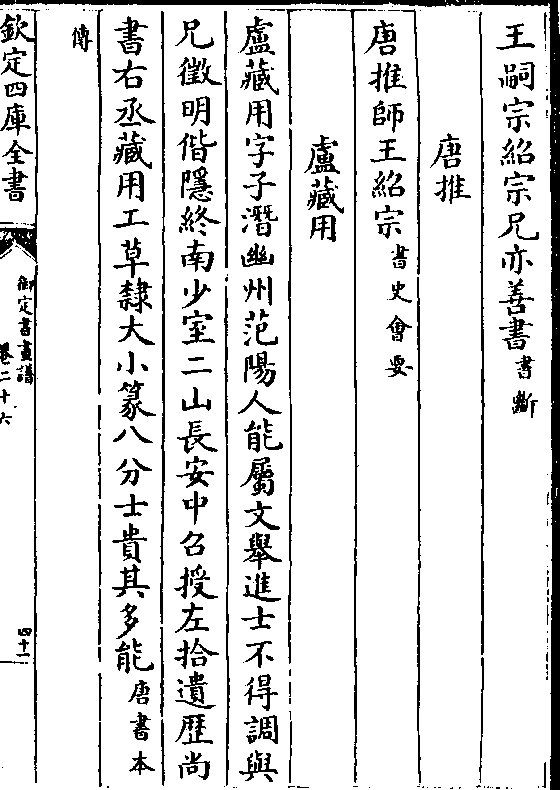 王嗣宗紹宗兄亦善書書斷
唐推
唐推師王紹宗書史會要
盧藏用
盧藏用字子潛幽州范陽人能屬文舉進士不得調與
兄徵明偕隱終南少室二山長安中召授左拾遺歷尚
書右丞藏用工草隸大小篆八分士貴其多能唐書本
傳
欽定四庫全書
御定書畫譜
卷二十六
四十一